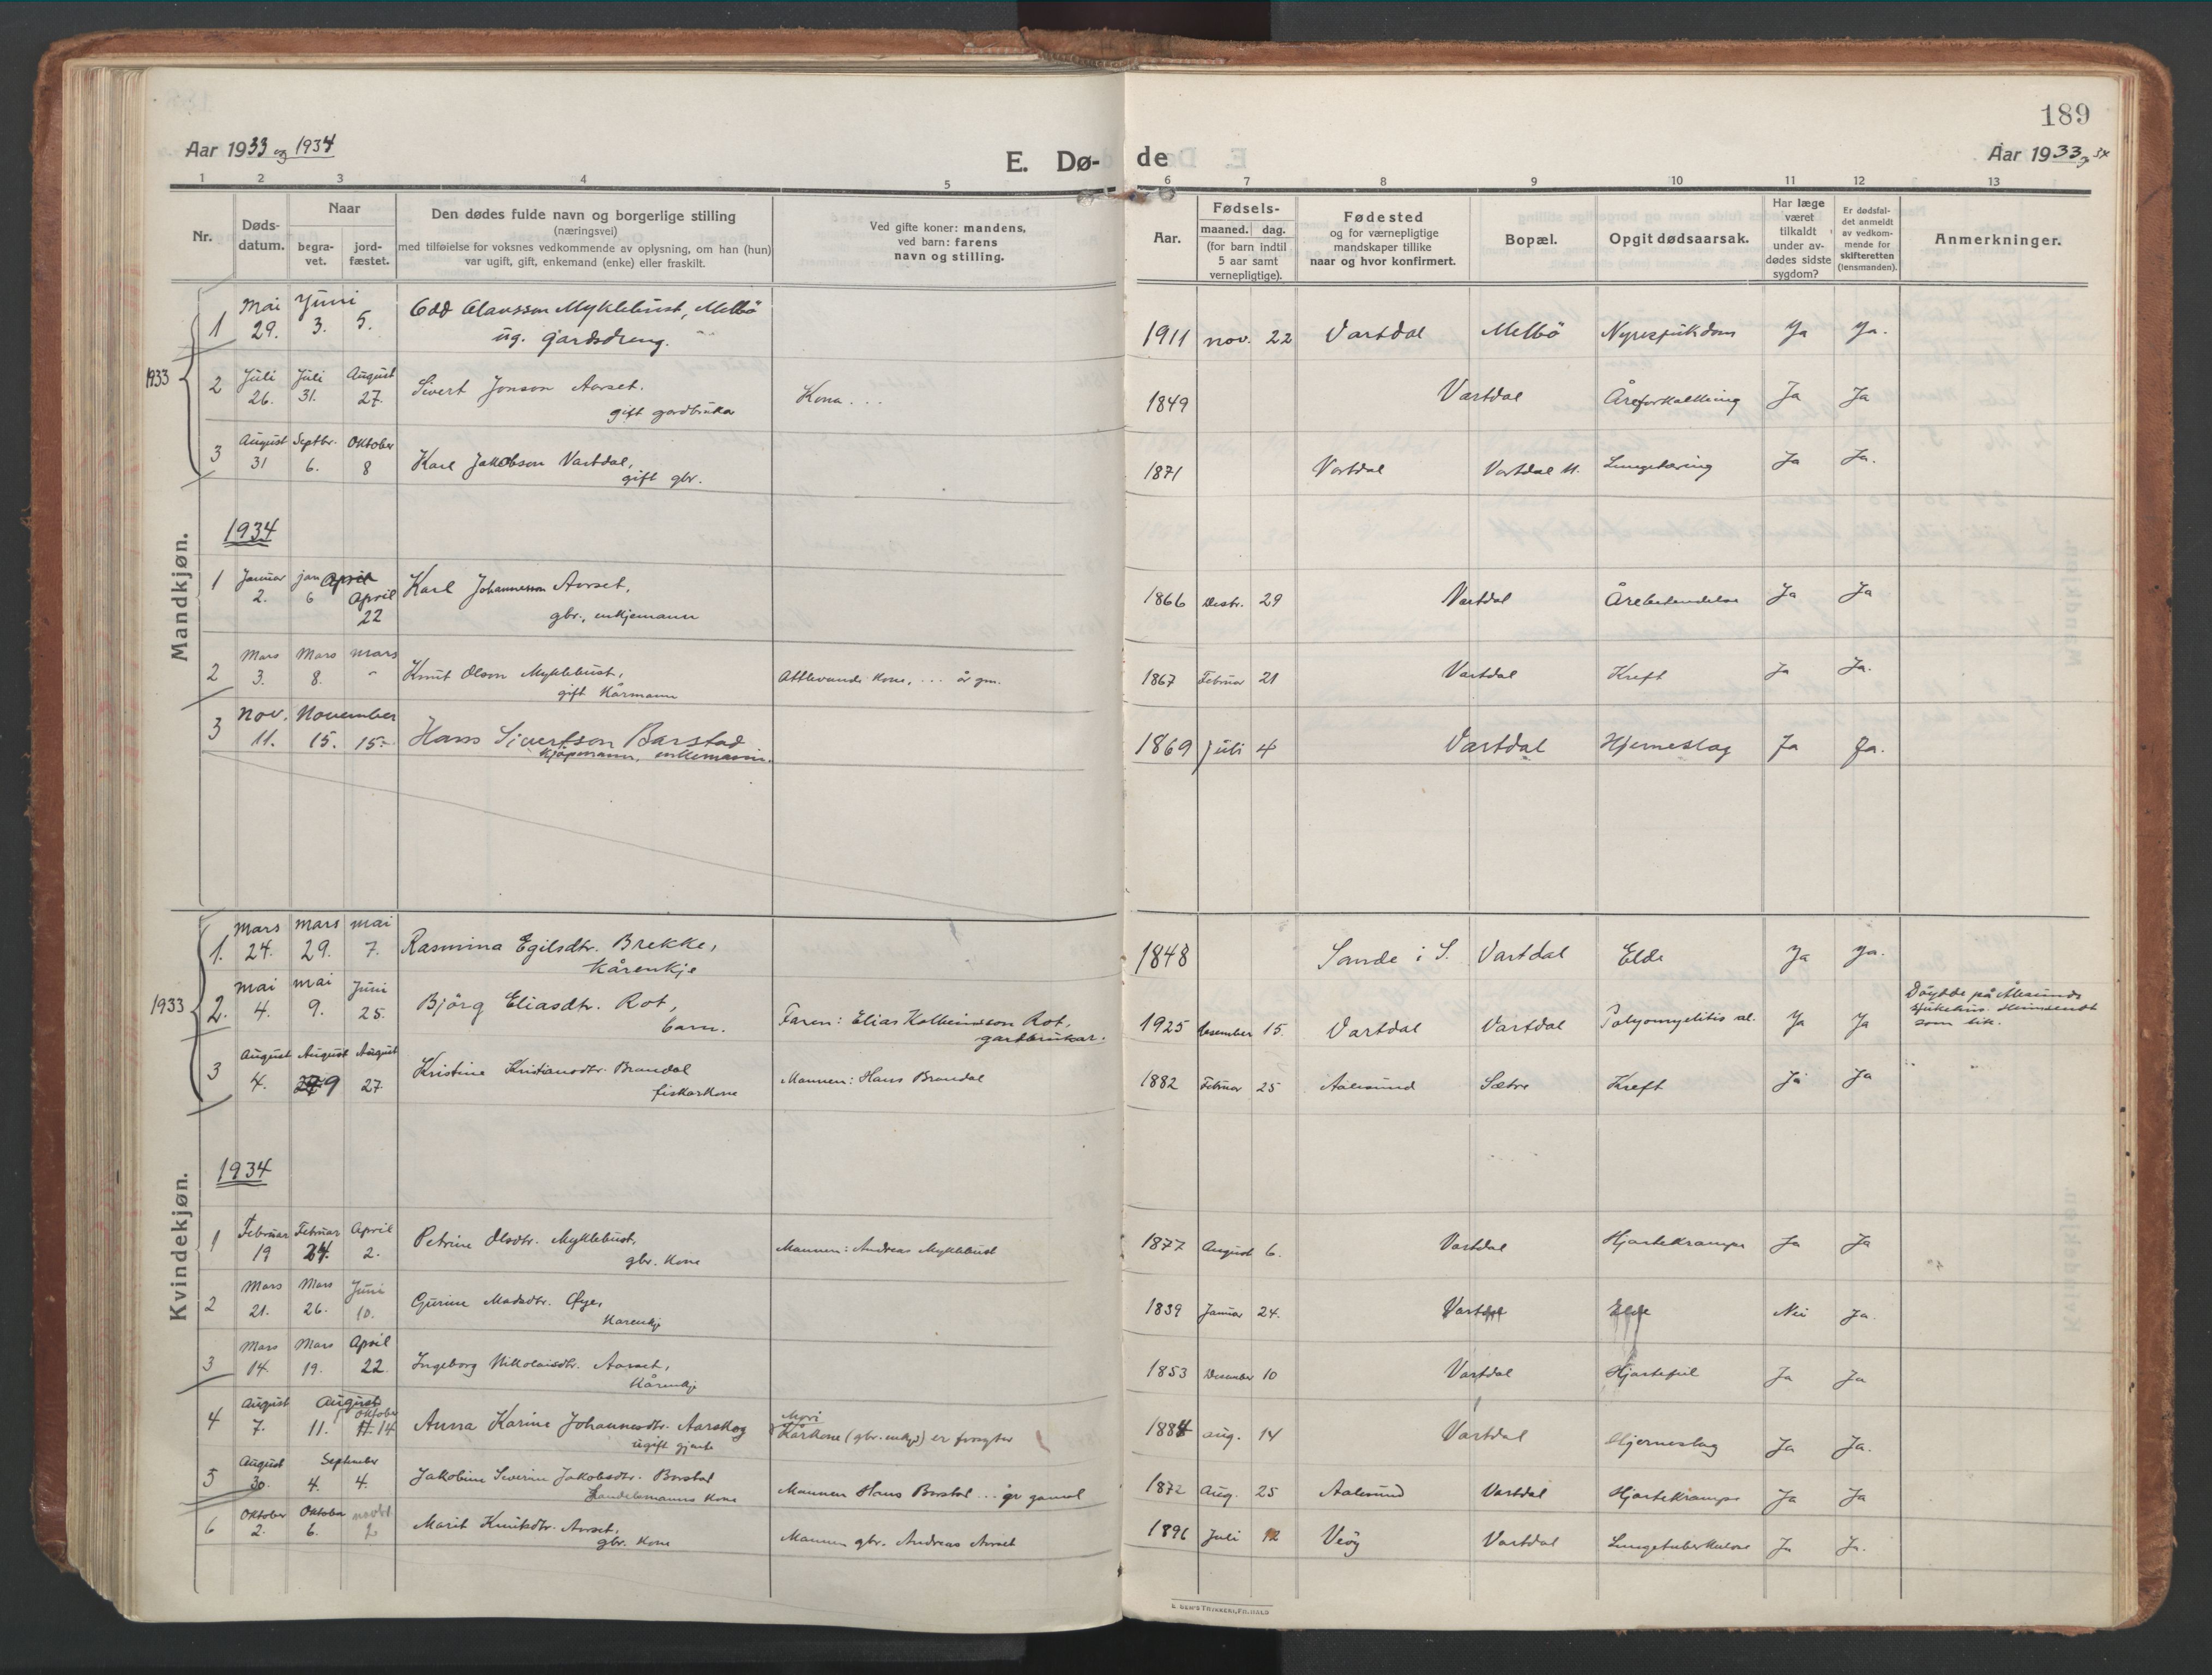 189
Aar 1933 og 1934
E. Dø-
de
Aar 1933 og 34
1 2 3 4 5 6 7 8 9 10 11 12 13
Nr.
Døds-
datum.
Naar
begra-
vet.
jord-
fæstet.
Den dødes fulde navn og borgerlige stilling
(næringsvei)
med tilføielse for voksnes vedkommende av oplysning, om han (hun)
var ugift, gift, enkemand (enke) eller fraskilt.
Ved gifte koner: mandens,
ved barn: farens
navn og stilling.
Aar.
Fødsels-
maaned. dag.
(for barn indtil
5 aar samt
vernepligtige).
Fødested
og for værnepligtige
mandskaper tillike
naar og hvor konfirmert.
Bopæl.
Opgit dødsaarsak.
Har læge
været
tilkaldt
under av-
dødes sidste
sygdom?
Er dødsfal-
det anmeldt
av vedkom-
mende for
skifteretten
(lensmanden).
Anmerkninger.
Mandkjøn.
1933
1 Mai 29. Juni 3. 5. Odd Olavsson Myklebust, Melbö
ug. gardsdreng.
1911 nov. 22 Vartdal Melbö Nyresjukdom Ja Ja.
2 Juli 26. Juli 31. August 27. Sivert Jonson Aarset.
gift gardbrukar
Kona ...
1849 Vartdal Åreforkalkning Ja Ja
3 August 31 Septbr. 6. Oktober 8 Karl Jakobson Vartdal,
gift gbr.
1871 Vartdal Vartdal M. Lungetæring Ja Ja.
1934
1 Januar 2. jan 6 April 22 Karl Johannesson Aarset,
gbr., enkjemann
1866 Desbr. 29 Vartdal Årebetendelse Ja Ja
2 Mars 3. Mars 8. mars - Knut Olson Myklebust,
gift Kårmann
Attlevande kone, ... år gm.
1867 Februar 21 Vartdal Kreft Ja Ja.
3 Nov. 11. November 15. 15.- Hans Sivertson Barstad
Kjøpmann, enkemann.
1869 juli 4 Vartdal Hjerneslag Ja Ja.
Kvindekjøn.
1933
1. mars 24. mars 29. mai 7. Rasmina Egilsdtr. Brekke,
kårenkje
1848 Sande i S. Vartdal Elde Ja Ja.
2. mai 4. mai 9. Juni 25. Bjørg Eliasdtr. Rot,
barn.
Faren: Elias Kolbeinsson Rot,
gardbrukar.
1925 Desember 15. Vartdal Vartdal Polyomyelitis al. Ja Ja
Döydde på Ålesunds
sjukehus. Heimsendt
som lik.
3 August 4. August 9 August 27. Kristine Kristiansdtr. Brandal
fiskarkone
Mannen: Hans Brandal
1882 Februar 25 Aalesund Sætre Kreft Ja Ja
1934
1 Februar 19 Februar 24. April 2. Petrine Olsdtr. Myklebust,
gbr. kone
Mannen: Andreas Myklebust
1877 August 6. Vartdal Hjartekrampe Ja Ja
2 Mars 21. Mars 26. Juni 10. Gurine Madsdtr. Øye,
Kårenkj
1839 Januar 24. Vartdal Elde Nei Ja.
3 Mars 14. Mars 19. April 22. Ingeborg Nikolaisdtr. Aarset,
Kårenkj
1853 December 10 Vartdal Hjartefeil Ja Ja
4 August 7. August 11. Oktober 14 Anna Karine Johannesdtr. Aarskog
ugift gjente
Mori
Kårkone (gbr. enkje) er forsytar
1884 aug. 14 Vartdal Hjerneslag Ja Ja.
5 August 30. September 4. 4. Jakobine Severine Jakobsdtr. Barstad
Handelsmanns kone
Mannen Hans Barstad ... år gamal
1872 Aug. 25 Aalesund Vartdal Hjartekrampe Ja Ja
6 Oktober 2. Oktober 6. novbr 2 Marit Knutsdtr. Aarset,
gbr. kone
Mannen gbr. Andreas Aarset
1896 Juli 12 Veöy Vartdal Lungetuberkulose Ja Ja.